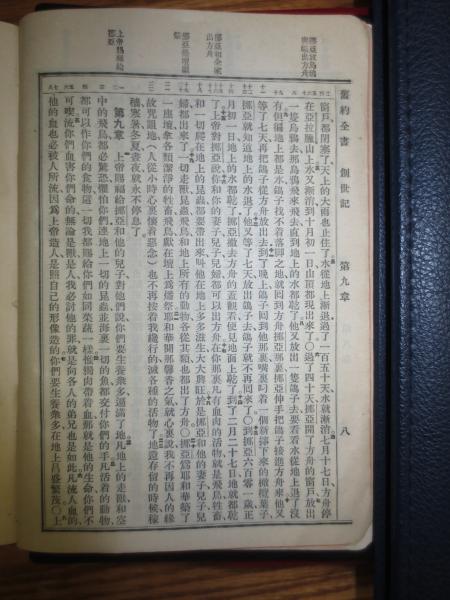 挪亞放鳥鴉
與鴿出方舟
挪亞和全家
出方舟
挪亞築壇獻
祭
上帝賜福給
挪亞
舊約全書 創世記 第九章 八
窗戶都閉塞了天上的大雨也止住了水從地上漸退過了一百五十天水就漸消七月十七日方舟停
在亞拉臘山上水又漸消到十月初一日山頂都現出來了〇過了四十天挪亞開了方舟的窗戶放出
一隻烏鴉去那烏鴉飛來飛去直到地上的水都乾了他又放出一隻鴿子去要看看水從地上退了沒
有但徧地上都是水鴿子找不着落腳之地就回到方舟挪亞那裏挪亞伸手把鴿子接進方舟來他又
等了七天再把鴿子從方舟放出去到了晚上鴿子回到他那裏嘴裏叼着一個新擰下來的橄欖葉子
挪亞就知道地上的水退了他又等了七天放出鴿子去鴿子就不再回來了〇到挪亞六百零一歲正
月初一日地上的水都乾了挪亞撤去方舟的蓋觀看便見地面上乾了到了二月二十七日地就都乾
了〇上帝對挪亞說你和你的妻子兒子兒婦都可以出方舟在你那裏凡有血肉的活物就是飛鳥牲畜
和一切爬在地上的昆蟲都要帶出來叫他在地上多多滋生大大興旺於是挪亞和他的妻子兒子兒
婦都出來了一切走獸昆蟲飛鳥和地上所有的動物各從其類也都出了方舟〇挪亞爲耶和華築了
一座壇拿各類潔淨的牲畜飛鳥獻在壇上爲燔祭耶和華聞那馨香之氣就心裏說我不再因人的緣
故咒詛地(人從小時心裏懷着惡念)也不再按着我纔行的滅各種的活物了地還存留的時候稼
穡寒暑冬夏晝夜就永不停息了
第九章 上帝賜福給挪亞和他的兒子對他們說你們要生養衆多遍滿了地凡地上的走獸和空
中的飛鳥都必驚恐懼怕你們連地上一切的昆蟲並海裏一切的魚都交付你們的手凡活着的動物
都可以作你們的食物這一切我都賜給你們如同菜蔬一樣惟獨肉帶着血那就是他的生命你們不
可喫流你們血害你們命的無論是獸是人我必討他的罪就是向各人的弟兄也是如此凡流人血的
他的血也必被人所流因爲上帝造人是照自己的形像造的你們要生養衆多在地上昌盛繁茂〇上